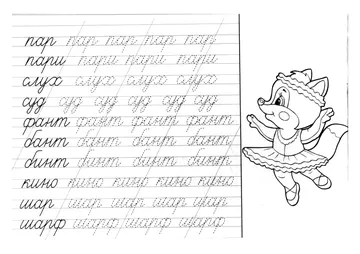 пар пар пар пар пар
пари пари пари пари
слух слух слух слух
суд суд суд суд суд суд
фант фант фант фант
бант бант бант бант
бинт бинт бинт бинт
кино кино кино кино кино
шар шар шар шар шар
шарф шарф шарф шарф